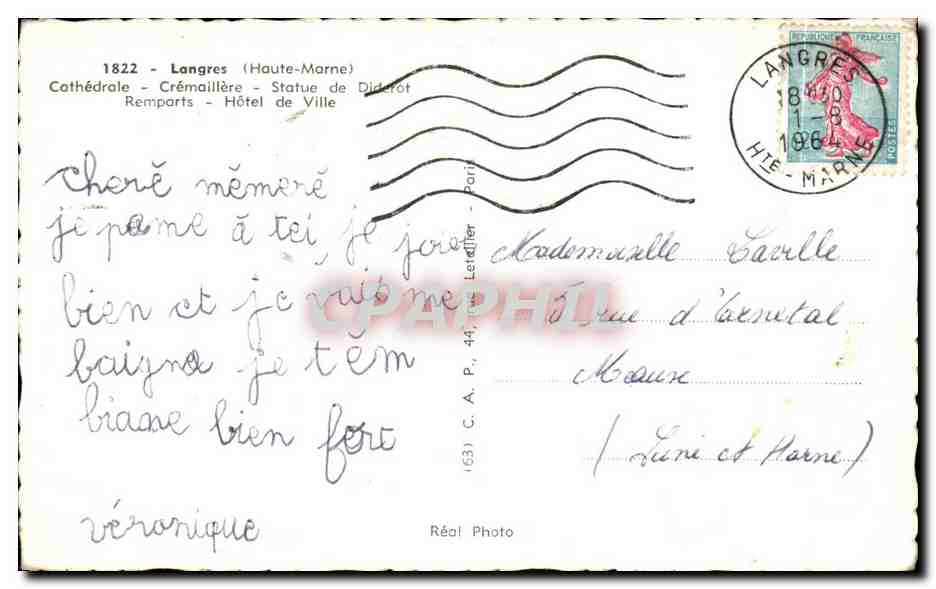 1822 - Langres (Haute-Marne)
Cathédrale - Crémaillère - Statue de Diderot
Remparts - Hôtel de Ville
REPUBLIQUE FRANÇAISE
POSTES
LANGRES
18H30
1-8
1964
HTE-MARNE
cheré mémeré
je pome à tei, je joie
bien et je vais me
baigne je têm
biane bien fort
véronique
(63) C. A. P., 44, rue Letellier - Paris
Mademoiselle Laville
5 rue d'Carnetal
Meaux
(Seine et Marne)
Réal Photo
CPAPHIL